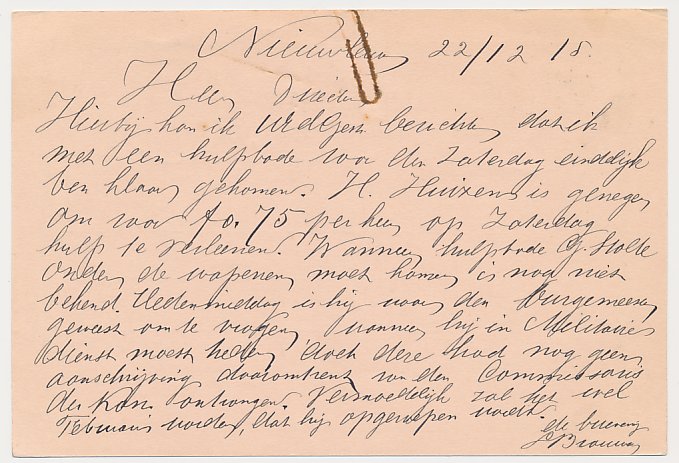 Nieuwleusen 22/12 15.
Heer Directeur
Hierbij kan ik UEdGestr berichten, dat ik
met een hulpbode voor den Zaterdag eindelijk
ben klaar gekomen. H. Huizen is genegen
om voor fo. 75 per keer op Zaterdag
hulp te verleenen. Wanneer hulpbode G. Stolte
onder de wapenen moet komen is nog niet
bekend. Hedenmiddag is hij naar den burgemeester
geweest om te vragen wanneer hij in Militaire
dienst moest treden, doch deze had nog geen
aanschrijving daaromtrent van den Commissaris
der Kon. ontvangen. Vermoedelijk zal het wel
Februari worden, dat hij opgeroepen wordt.
de
Brouwer